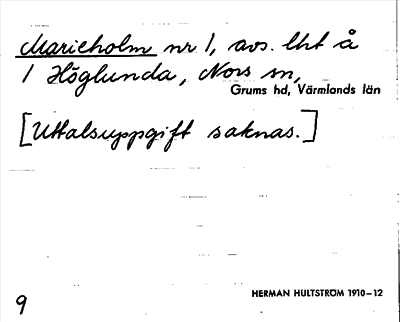 Marieholm nr 1, avs. lht å
1 Höglunda, Nors sn,
Grums hd, Värmlands län
[Uttalsuppgift saknas.]
HERMAN HULTSTRÖM 1910-12
9